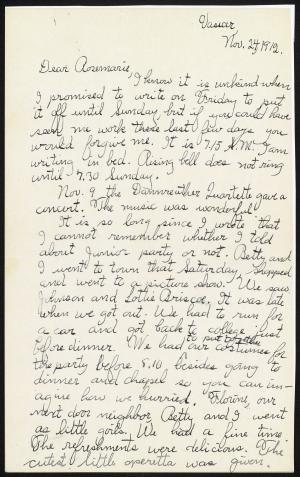 Vassar
Nov. 24, 1912.
Dear Rosemarie,
I know it is unkind when
I promised to write on Friday to put
it off until Sunday but if you could have
seen me work these last few days you
would forgive me. It is 7.15 A.M. I am
writing in bed. Rising bell does not ring
until 7.30 Sunday.
Nov. 9 the Dannreuther Quartette gave a
concert. The music was wonderful.
It is so long since I wrote that
I cannot remember whether I told
about Junior party or not. Betty and
I went to town that Saturday, shopped
and went to a picture show. We saw
Johnson and Lottie Briscoe. It was late
when we got out. We had to run for
a car and got back to college just
before dinner. We had to put together our costumes for
the party before 8.10 besides going to
dinner and chapel so you can im-
agine how we hurried. Florine, our
next door neighbor, Betty and I went
as little girls. We had a fine time.
The refreshments were delicious. The
cutest little operetta was given.